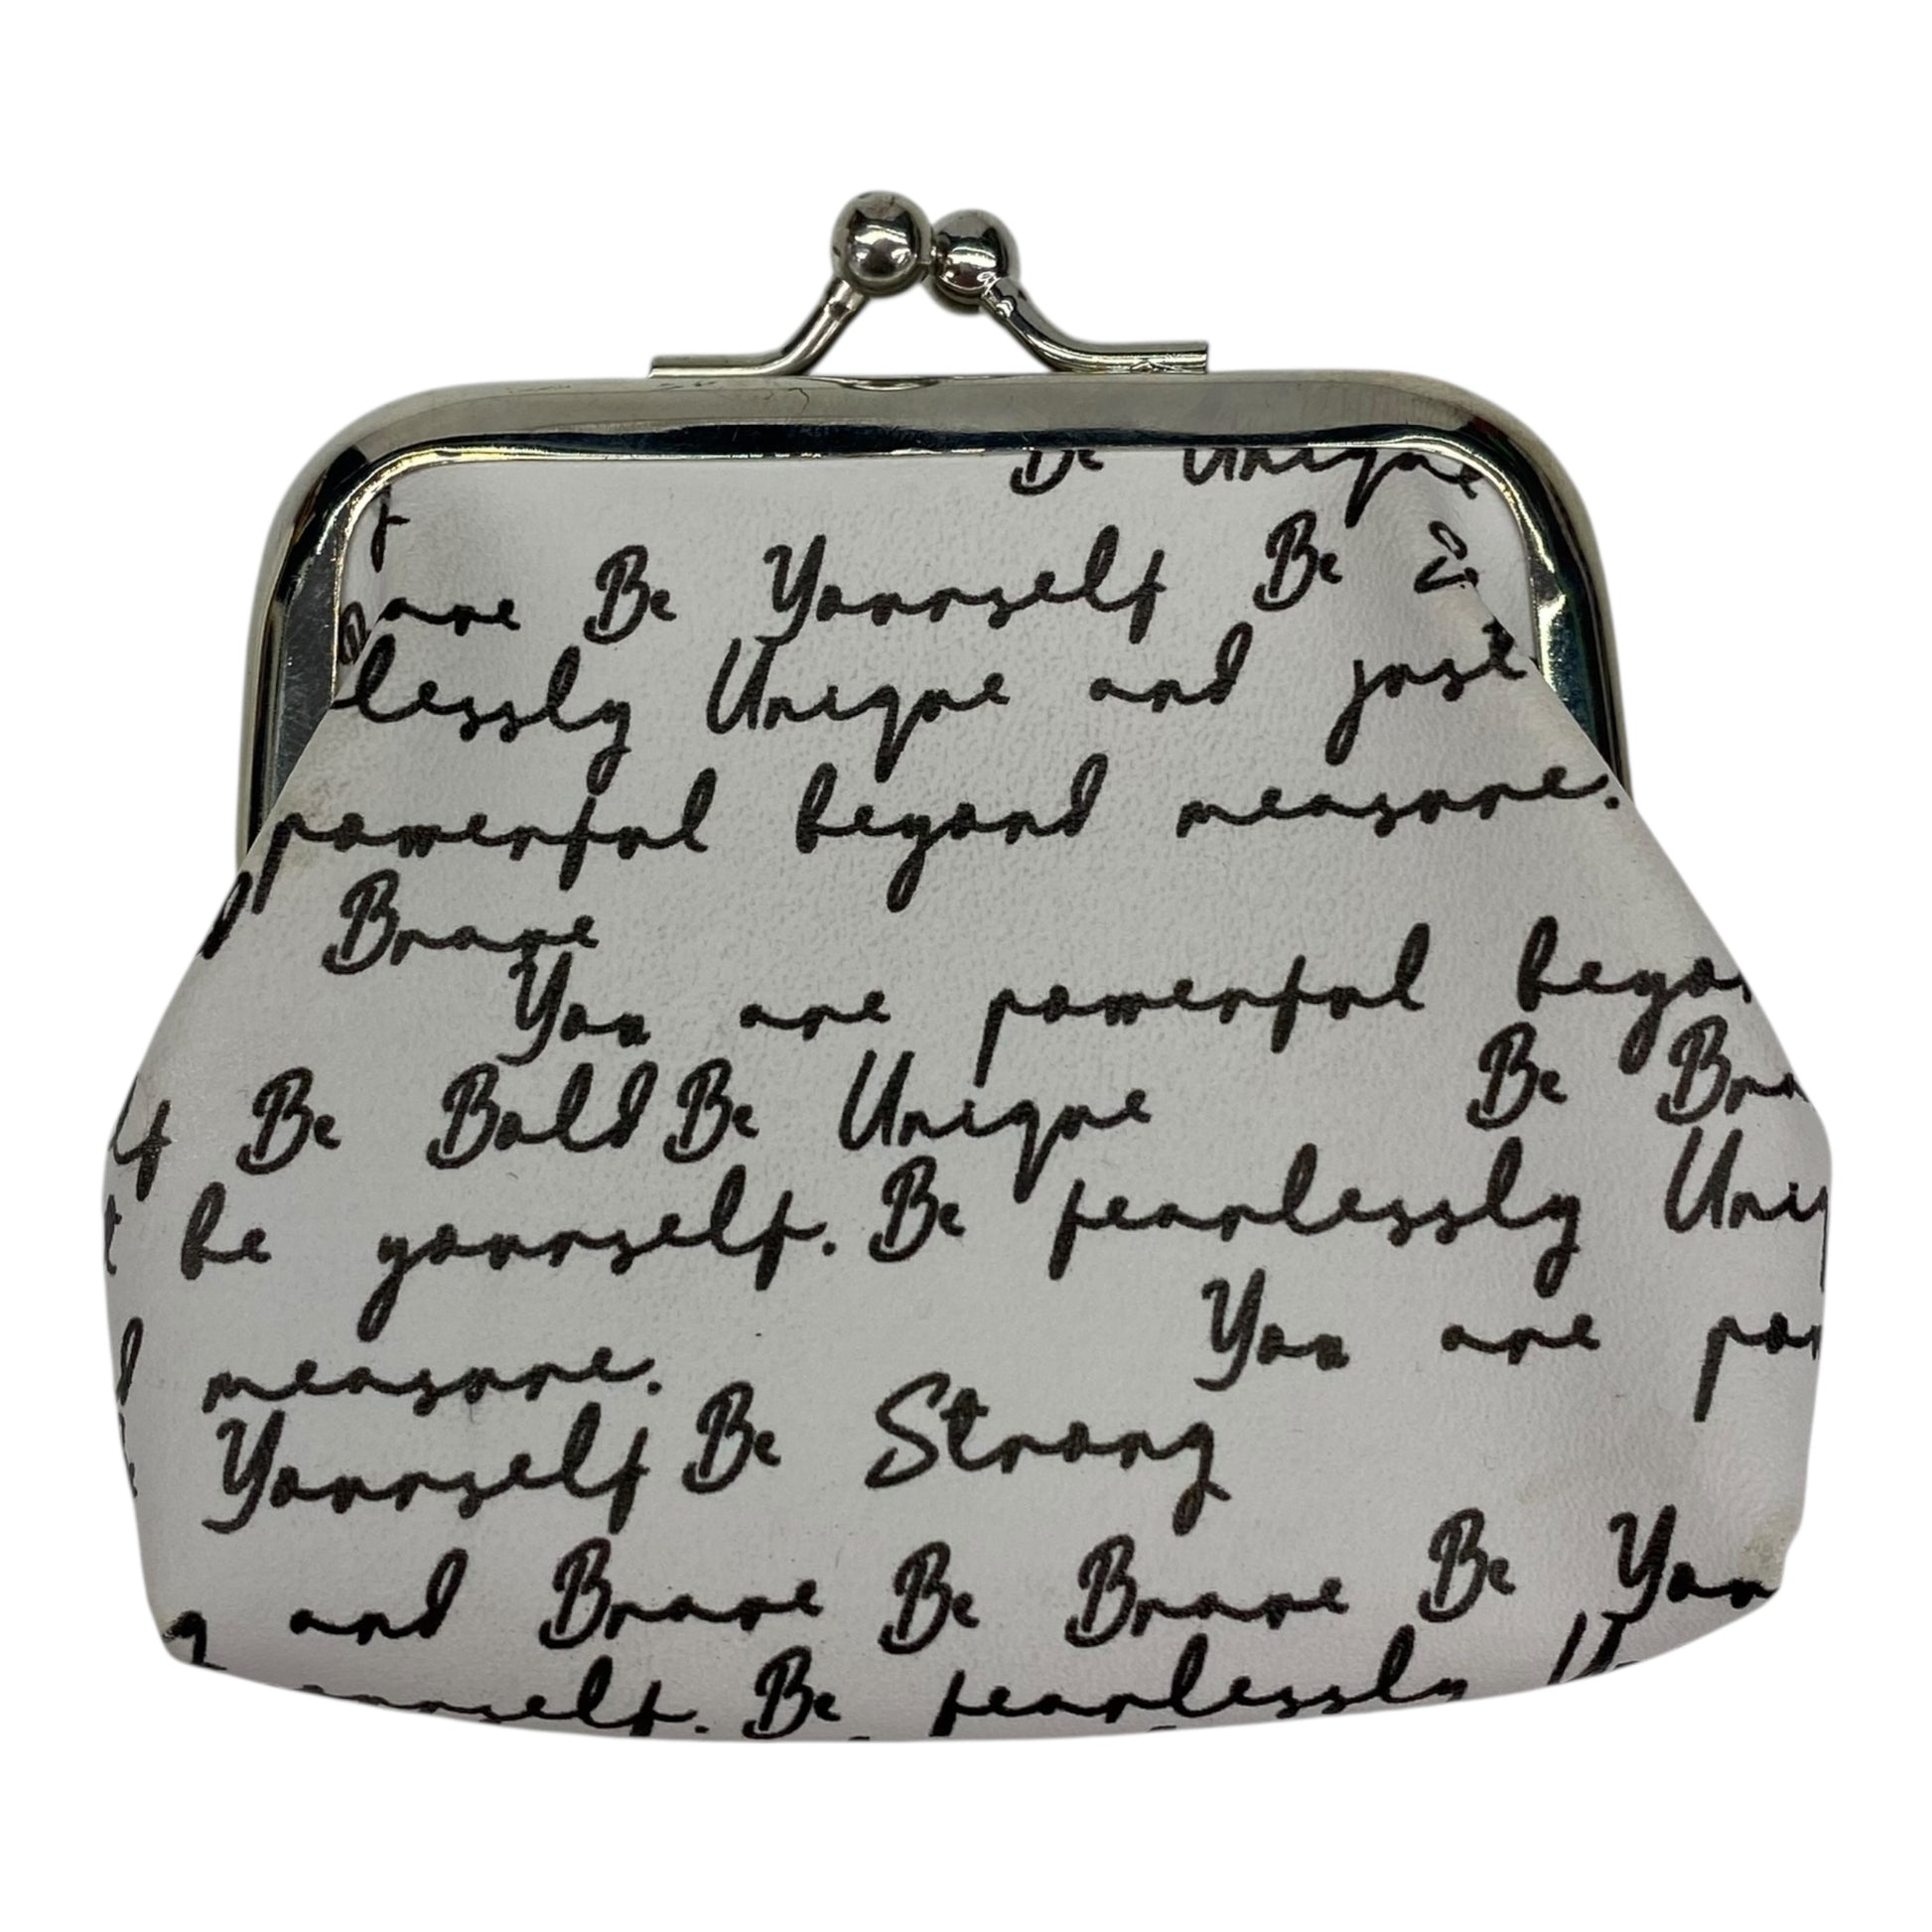 Be Unique
Be Yourself Be
lessly Unique and just
powerful beyond measure.
Brave
You are powerful beyon
lf Be Bold Be Unique Be Bra
t be yourself. Be fearlessly Uniq
d measure. You are pow
Yourself Be Strong
g and Brave Be Brave Be You
yourself. Be fearlessly Un